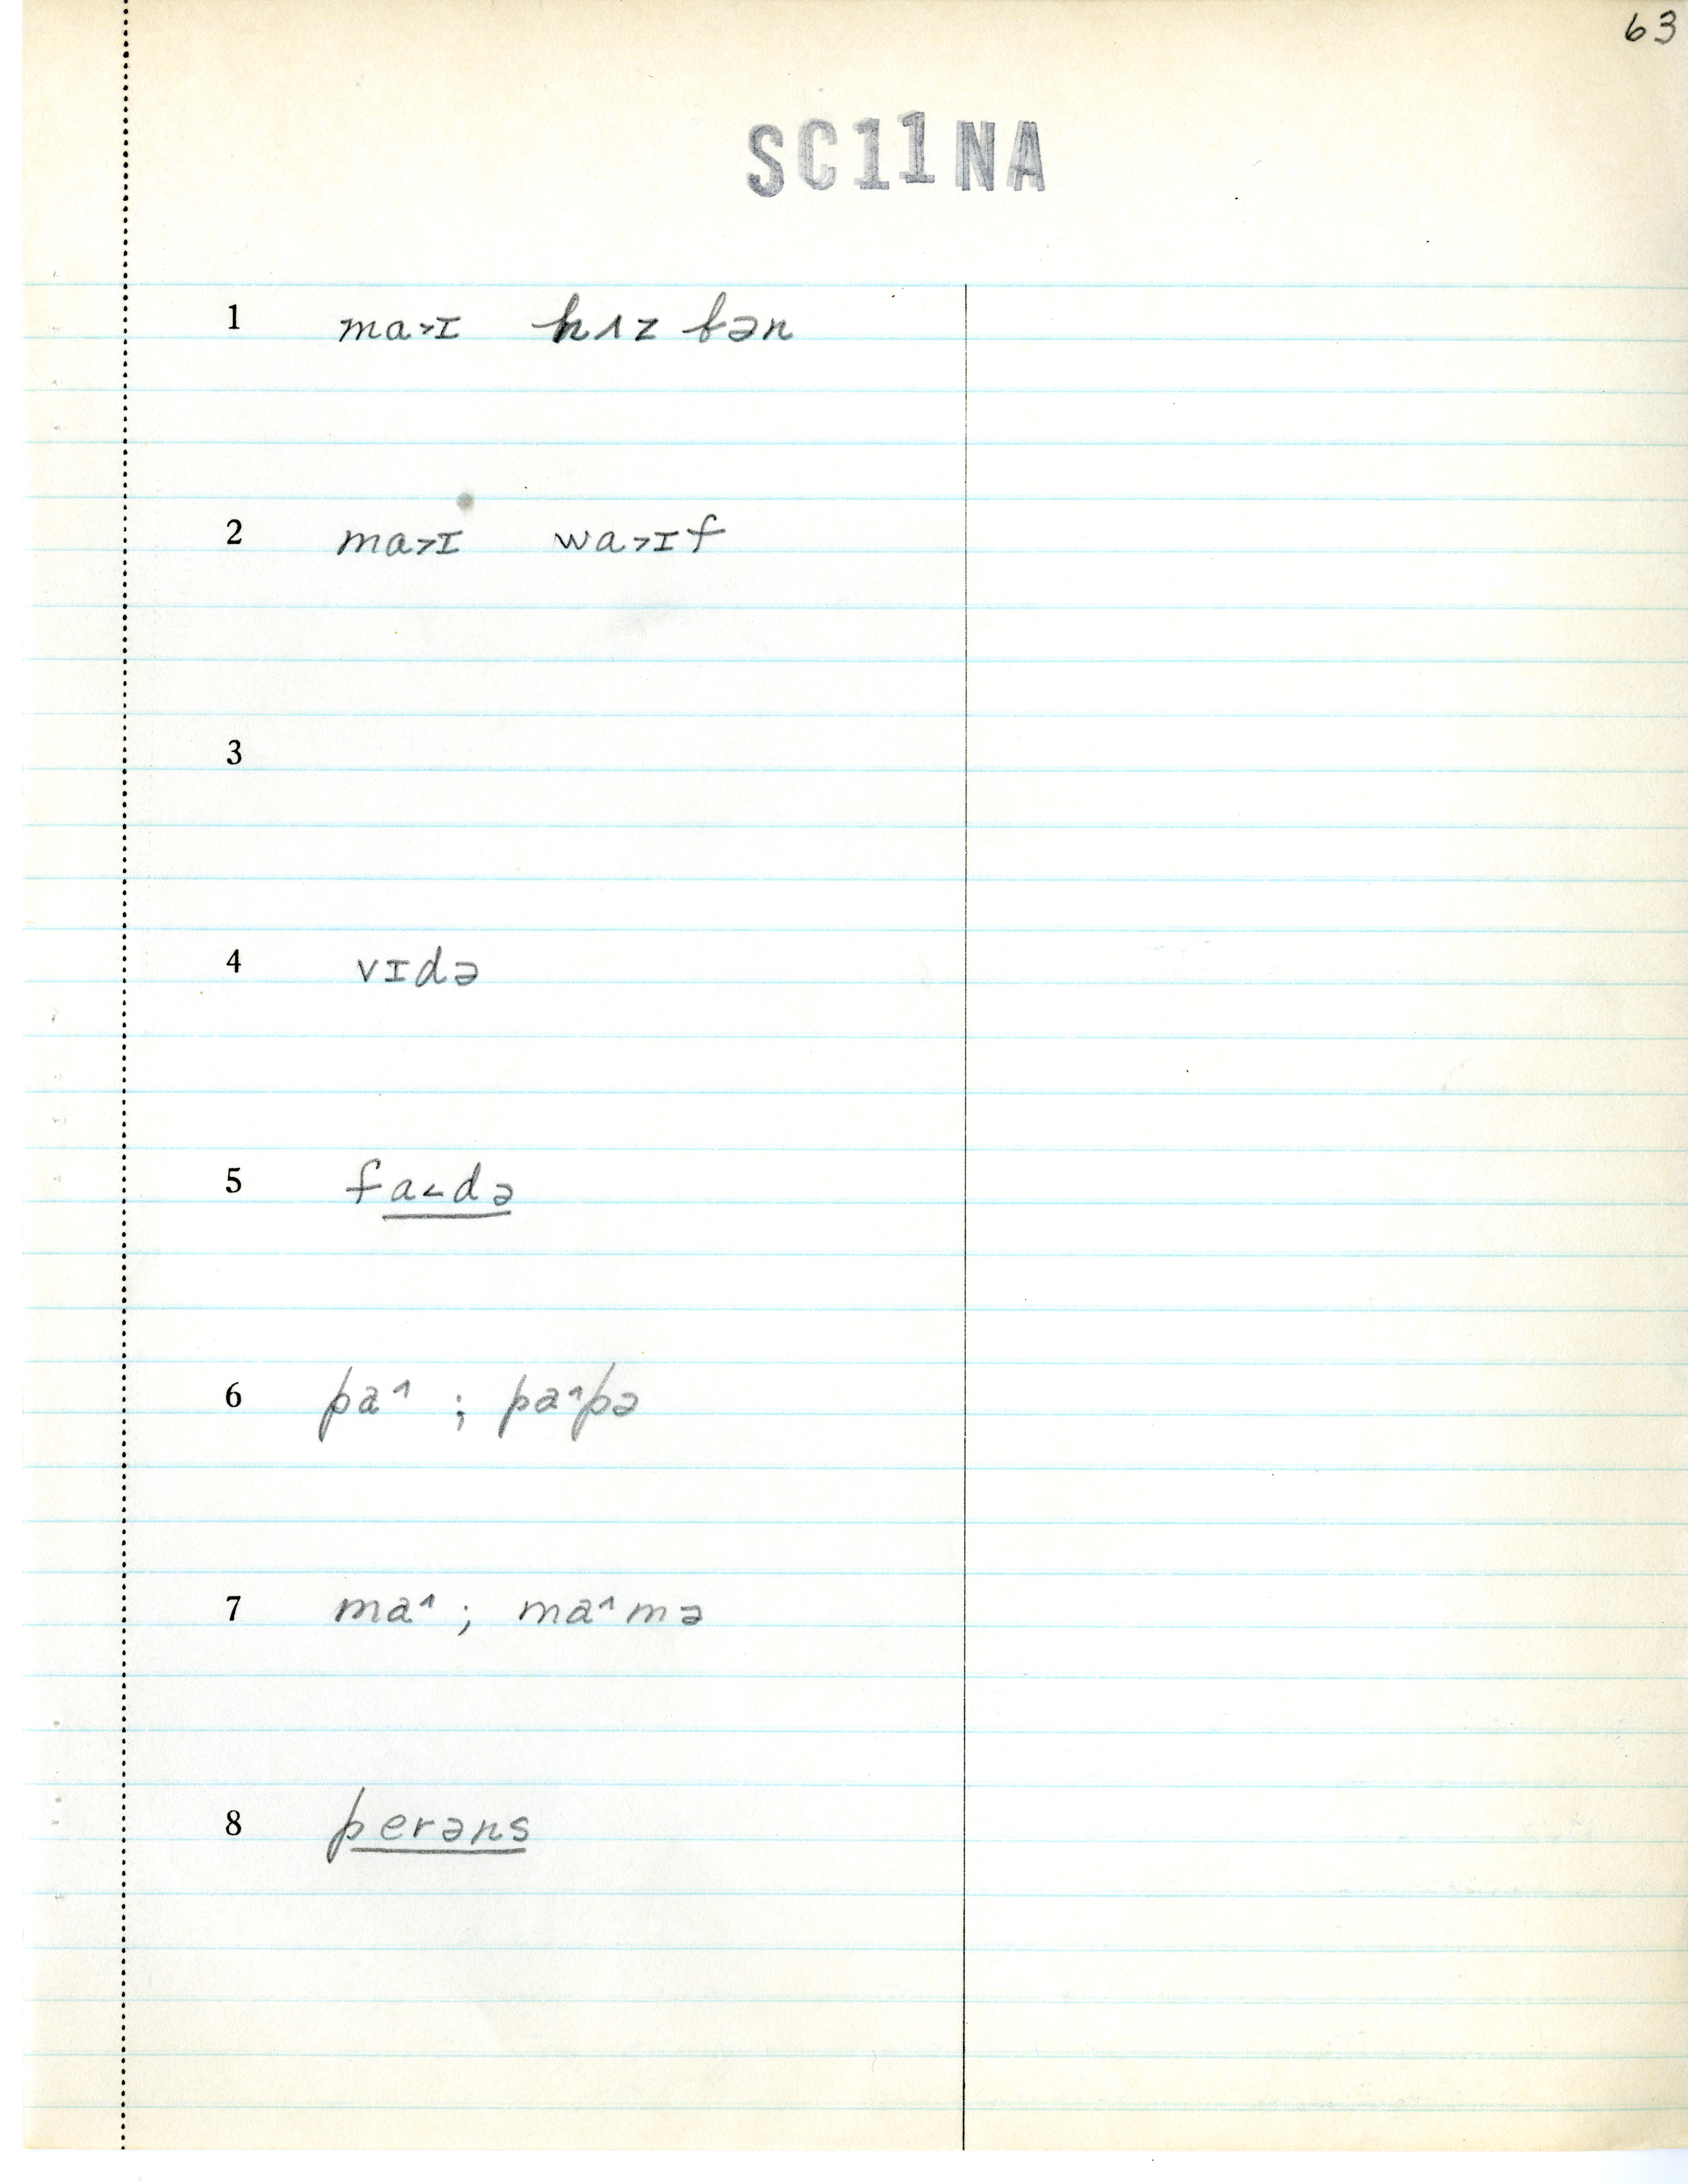 63
SC11NA
1 ma˃ɪ hʌzbən
2 ma˃ɪ wa˃ɪf
3
4 vɪdə
5 fa˂də
6 pa˄ ; pa˄pə
7 ma˄ ; ma˄mə
8 perəns